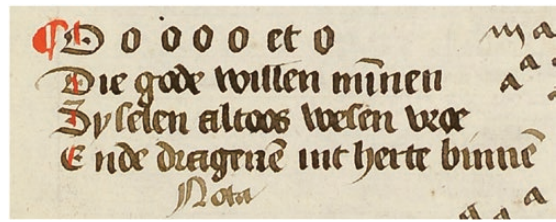 O o o o o et o
Die gode willen mīnen
Sy selen altoos wesen vroe
Ende dragenē int herte binnē
Nota